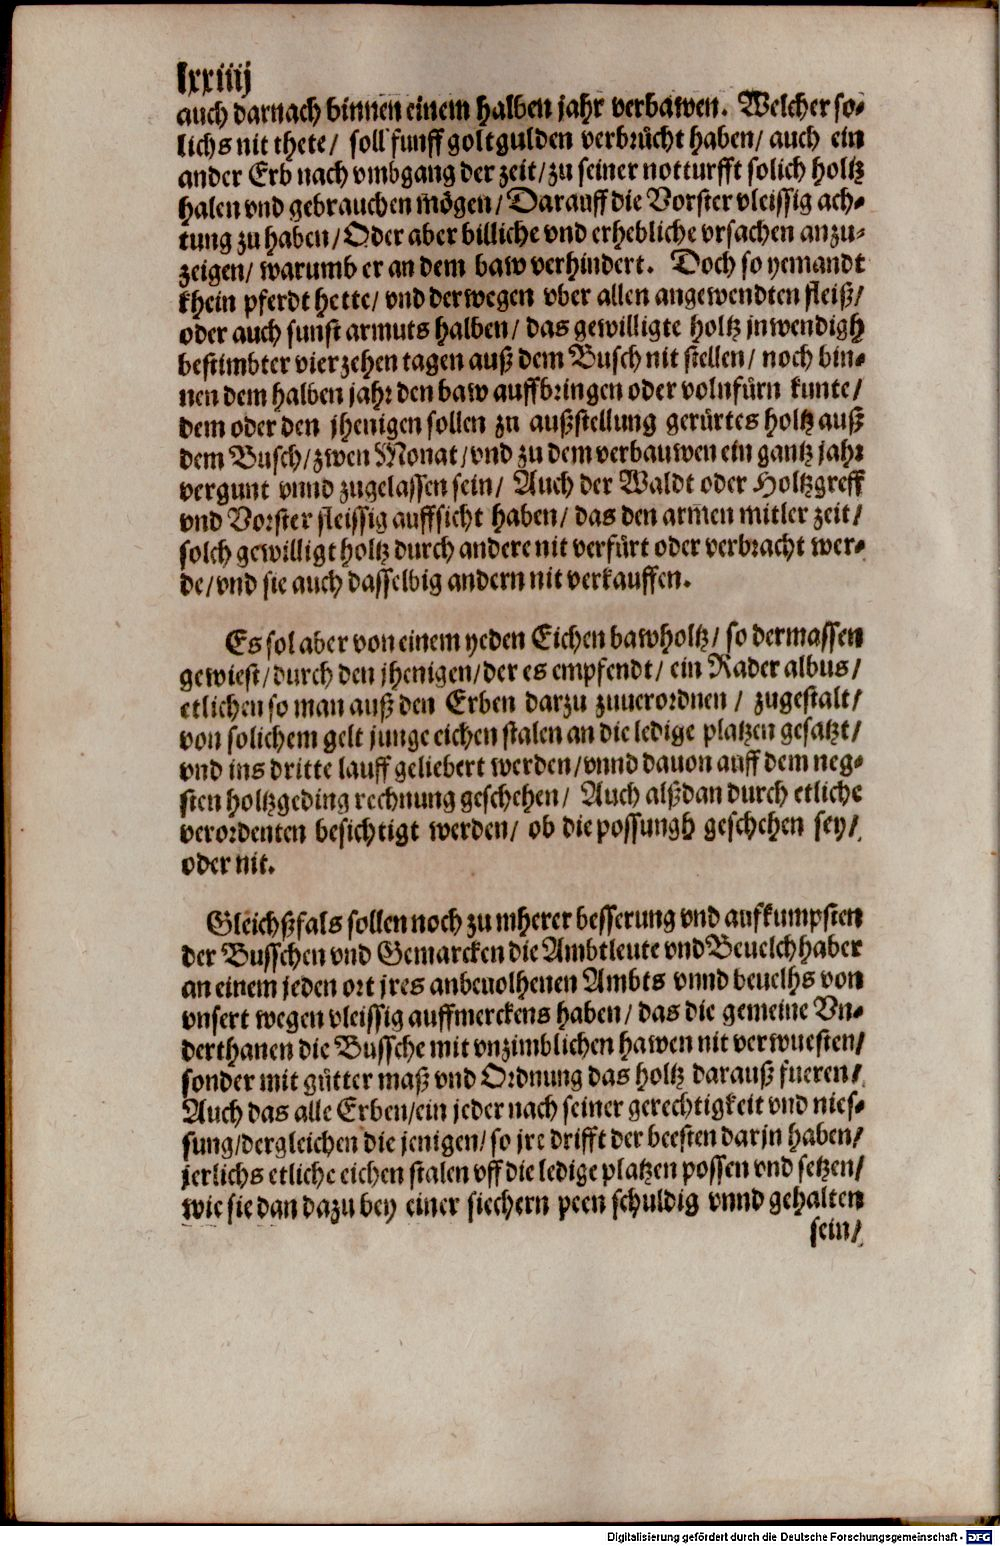 lxxiiij
auch darnach binnen einem halben jahr verbawen. Welcher so-
lichs nit thete/ soll funff goltgulden verbrücht haben/ auch ein
ander Erb nach vmbgang der zeit/ zu seiner notturfft solich holtz
halen vnd gebrauchen mögen/ Darauff die Vorster vleissig ach-
tung zu haben/ Oder aber billiche vnd erhebliche vrsachen anzu-
zeigen/ warumb er an dem baw verhindert. Doch so yemandt
khein pferdt hette/ vnd derwegen vber allen angewendten fleiß/
oder auch sunst armuts halben/ das gewilligte holtz jnwendigh
bestimbter vierzehen tagen auß dem Busch nit stellen/ noch bin-
nen dem halben jahr den baw auffbringen oder volnfürn kunte/
dem oder den jhenigen sollen zu außstellung gerürtes holtz auß
dem Busch/ zwen Monat/ vnd zu dem verbauwen ein gantz jahr
vergunt vnnd zugelassen sein/ Auch der Waldt oder Holtzgreff
vnd Vorster fleissig auffsicht haben/ das den armen mitler zeit/
solch gewilligt holtz durch andere nit verfürt oder verbracht wer-
de/ vnd sie auch dasselbig andern nit verkauffen.
Es sol aber von einem yeden Eichen bawholtz/ so dermassen
gewiest/ durch den jhenigen/ der es empfendt/ ein Rader albus/
etlichen so man auß den Erben darzu zuuerordnen / zugestalt/
von solichem gelt junge eichen stalen an die ledige platzen gesatzt/
vnd ins dritte lauff geliebert werden/ vnnd dauon auff dem neg-
sten holtzgeding rechnung geschehen/ Auch alßdan durch etliche
verordenten besichtigt werden/ ob die possungh geschehen sey/
oder nit.
Gleichßfals sollen noch zu mherer besserung vnd aufkumpsten
der Busschen vnd Gemarcken die Ambtleute vnd Beuelchhaber
an einem jeden ort jres anbeuolhenen Ambts vnnd beuelhs von
vnsert wegen vleissig auffmerckens haben/ das die gemeine Vn-
derthanen die Bussche mit vnzimblichen hawen nit verwuesten/
sonder mit gütter maß vnd Ordnung das holtz darauß fueren/
Auch das alle Erben/ ein jeder nach seiner gerechtigkeit vnd nies-
sung/ dergleichen die jenigen/ so jre drifft der beesten darjn haben/
jerlichs etliche eichen stalen vff die ledige platzen possen vnd setzen/
wie sie dan dazu bey einer siechern peen schuldig vnnd gehalten
sein/
Digitalisierung gefördert durch die Deutsche Forschungsgemeinschaft - DFG